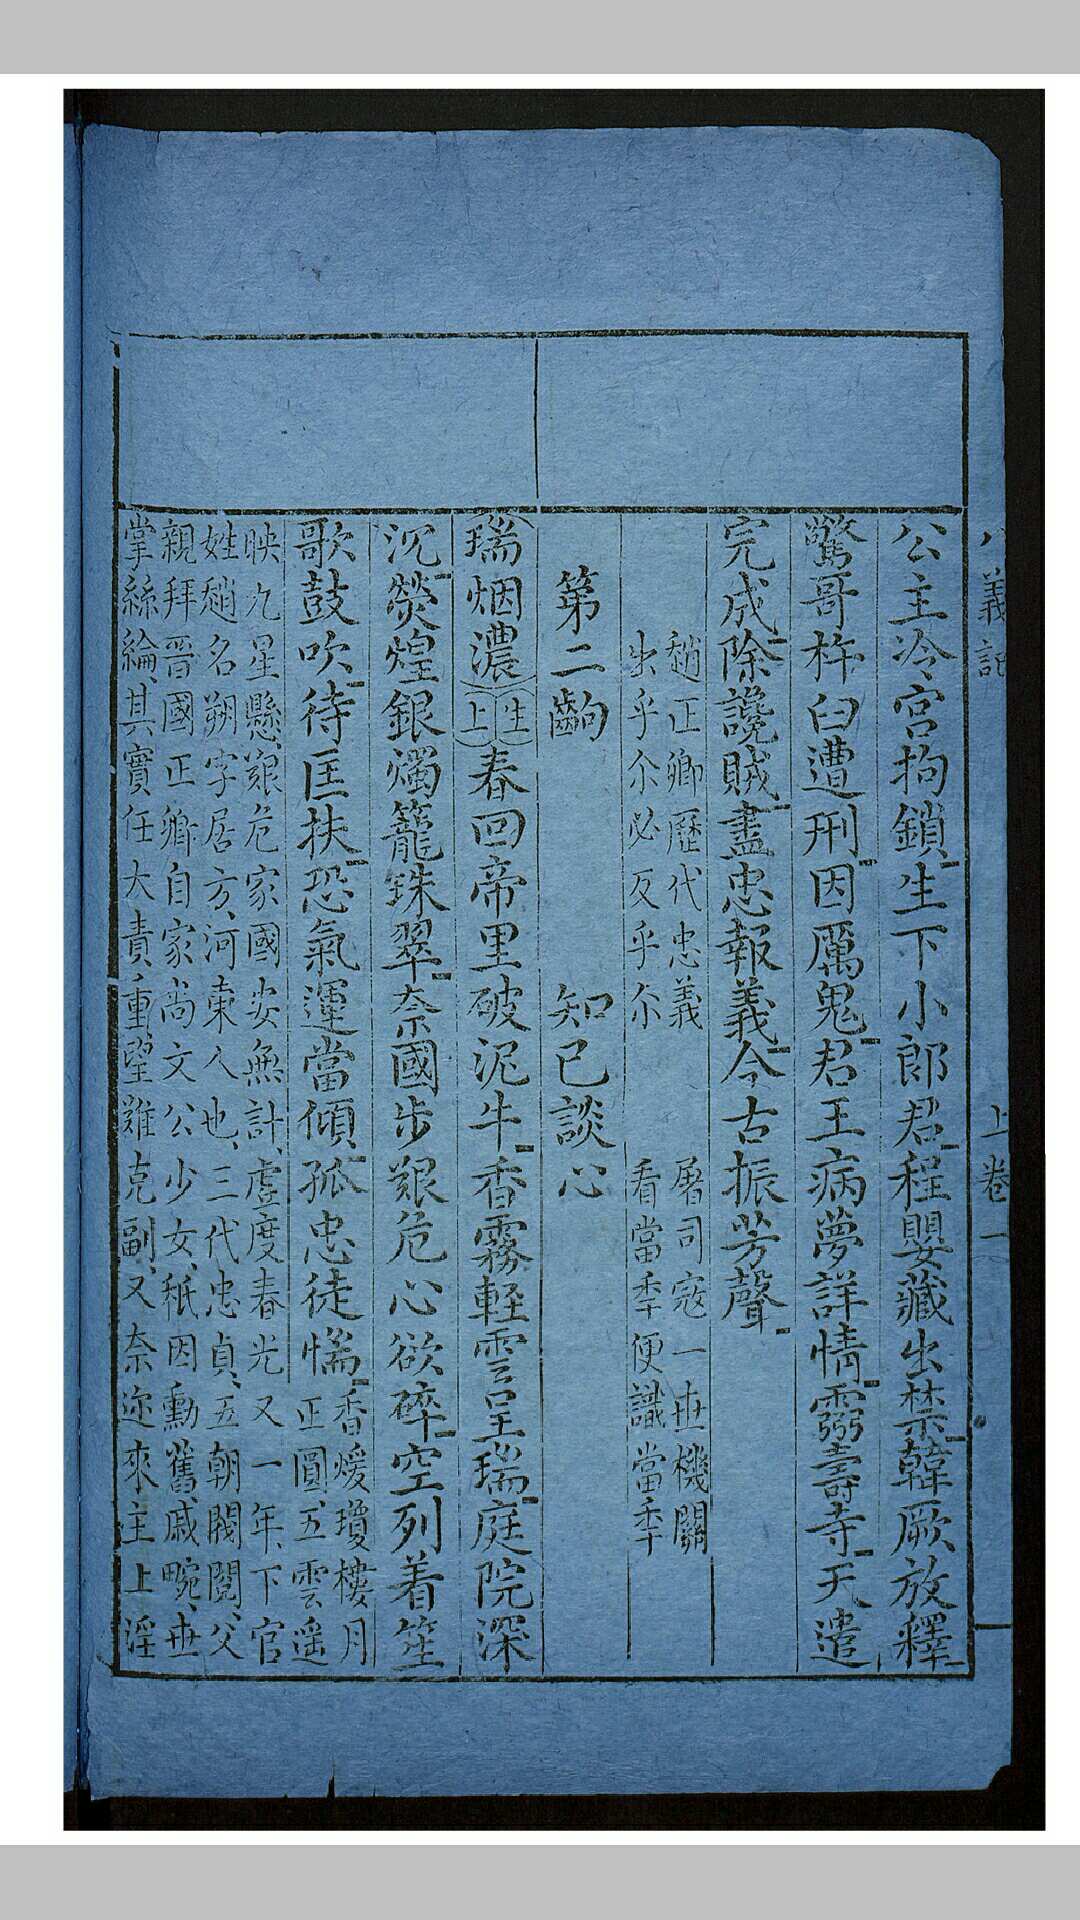 八義記 上卷 一
公主冷宮拘鎖生下小郎君程嬰藏出禁韓厥放釋
驚哥杵臼遭刑因厲鬼君王病夢詳情靈壽寺天遣
完成除讒賊盡忠報義今古振芳聲
趙正卿歷代忠義 屠司寇一世機關
出乎尒必反乎尒 看當秊便識當秊
第二齣 知已談心
瑞烟濃生上春回帝里破泥牛香霧輕雲呈瑞庭院深
沉熒煌銀燭籠銖翠奈國步艱危心欲碎空列着笙
歌鼓吹待匡扶恐氣運當傾孤忠徒惴香煖瓊樓月
正圓五雲遥
映九星懸艱危家國安無計虛度春光又一年下官
姓趙名朔字居方河東人也三代忠貞五朝閥閱父
親拜晉國正卿自家尚文公少女秖因勳舊戚畹世
掌絲綸其實任大責重望難克副又奈迩來主上淫